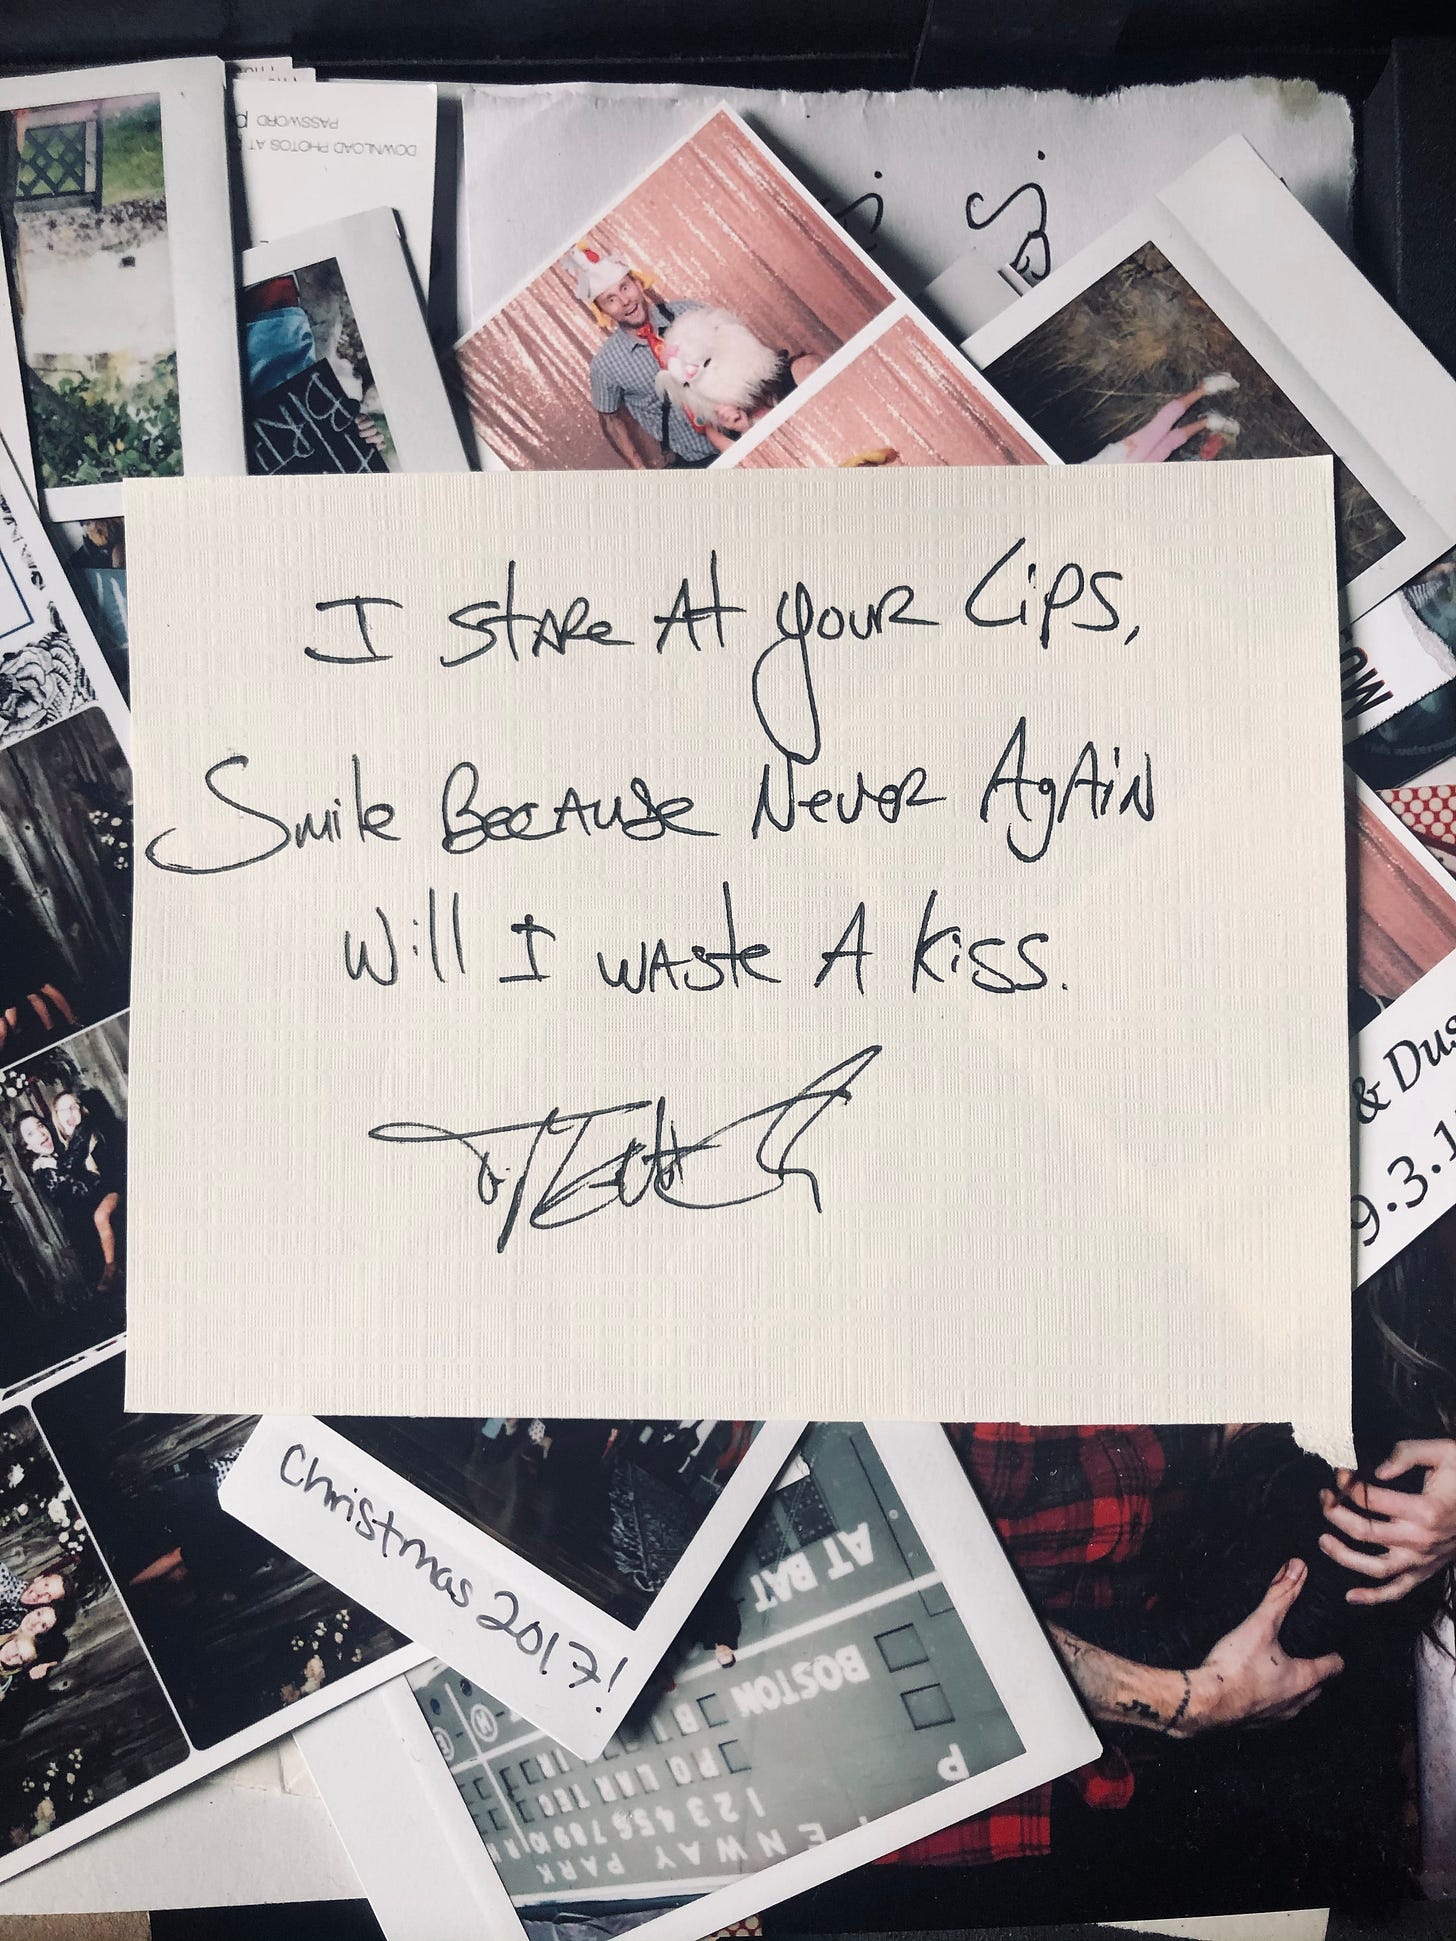 DOWNLOAD PHOTOS AT
PASSWORD
I Stare At your Lips,
Smile Because Never Again
Will I waste A kiss.
& Dus
9.3.1
Christmas 2017!
AT BAT
BOSTON
P
ENWAY PARK